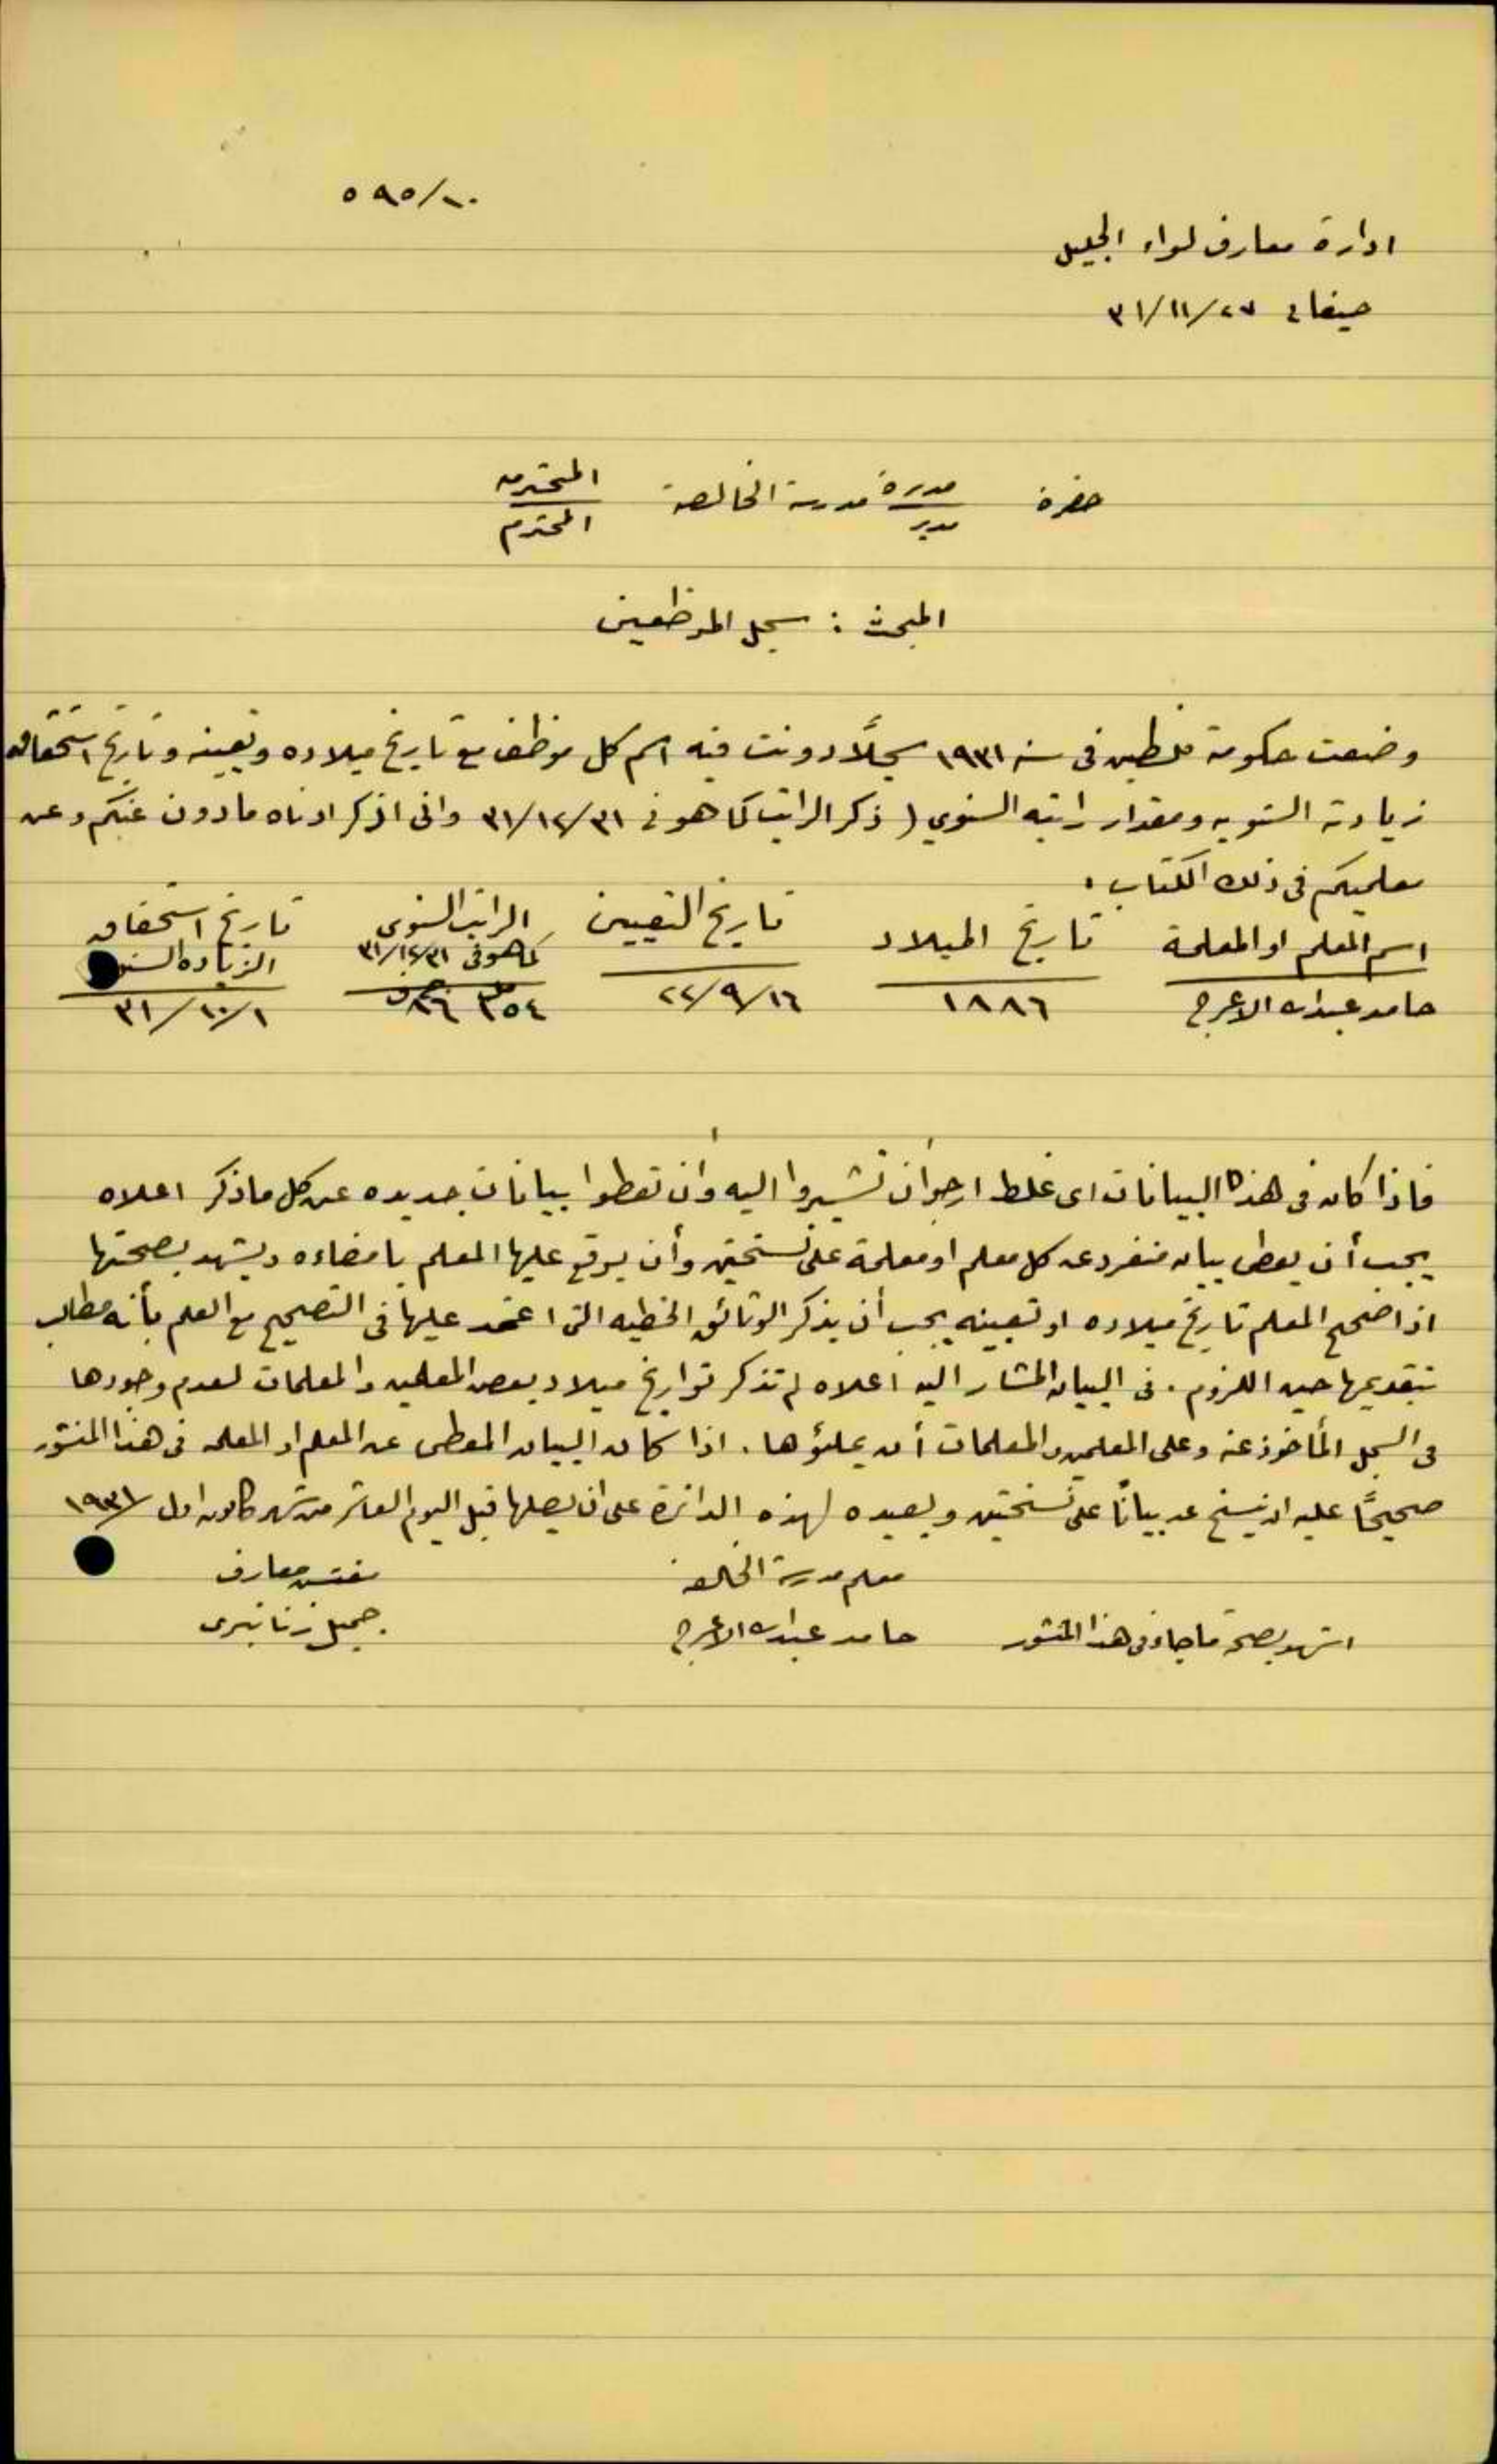 ٥٩٥/١٠
ادارة معارف لواء الجليل
حيفا في ٢٧/١١/٣١
حضرة مديرة مدرسة الخالصة المحترمه
مدير المحترم
المبحث : سجل الموظفين
وضعت حكومة فلسطين فى سنة ١٩٣١ سجلاً دونت فيه اسم كل موظف مع تاريخ ميلاده وتعيينه وتاريخ استحقاقه
زيادته السنويه ومقدار راتبه السنوي ( ذكر الراتب كما هو فى ٣١/١٢/٣١ وانى اذكر ادناه ما دون عنكم وعن
معلميكم فى ذلك الكتاب .
اسم المعلم او المعلمة تاريخ الميلاد تاريخ التعيين الراتب السنوى كما هو فى ٣١/١٢/٣١ تاريخ استحقاق الزياده
حامد عبدالله الاعرج ١٨٨٦ ١٦/٩/٢٢ ١/١٠/٣١
فاذا كان فى هذه البيانات اى غلط ارجو أن تشيروا اليه وأن تعطوا بيانات جديده عن كل ما ذكر اعلاه
يجب أن يعطى بيان منفرد عن كل معلم او معلمة على نسختين وأن يوقع عليها المعلم بامضاءه ويشهد بصحتها
اذا صحح المعلم تاريخ ميلاده او تعيينه يجب أن يذكر الوثائق الخطيه التى اعتمد عليها فى التصحيح مع العلم بأنه مطالب
بتقديمها حين اللزوم . فى البيان المشار اليه اعلاه لم تذكر تواريخ ميلاد بعض المعلمين والمعلمات لعدم وجودها
فى السجل المأخوذ عنه وعلى المعلمين والمعلمات أن يملؤها . اذا كان البيان المعطى عن المعلم او المعلمه فى هذا المنشور
صحيحًا عليه ان ينسخ عنه بيانًا على نسختين ويعيده لهذه الدائرة على ان يصلها قبل اليوم العاشر من شهر كانون اول ١٩٣١
معلم مدرسة الخالصة مفتش معارف
اشهد بصحة ما جاء فى هذا المنشور حامد عبدالله الاعرج جميل زناتيرى